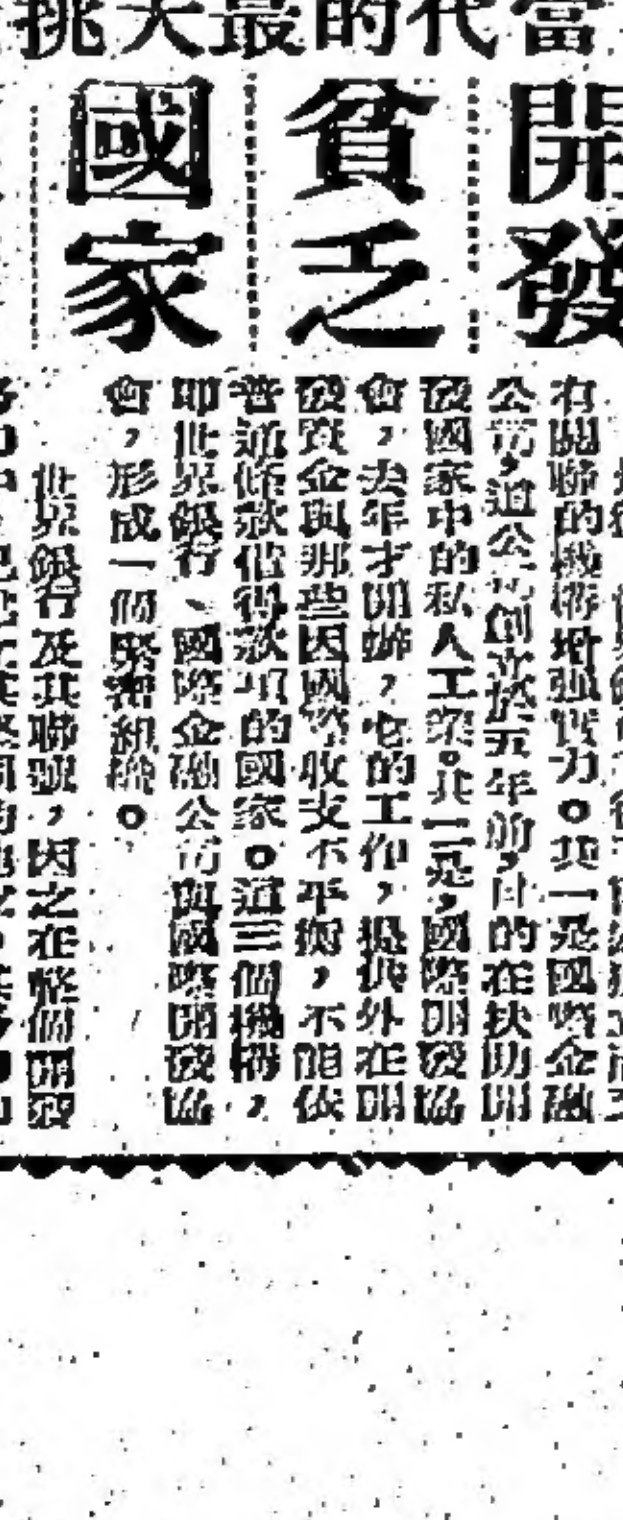 當代的最大挑
開發
貧乏
國家
有關聯的機構增強實力。其一是國際金融
公司，這公司創立於五年前，目的在扶助開
發國家中的私人工業。其二是，國際開發協
會，去年才開辦，它的工作，提供外在開
發資金與那些因國際收支不平衡，不能依
普通條款借得款項的國家。這三個機構，
即世界銀行、國際金融公司與國際開發協
會，形成一個緊密組織。
世界銀行及其聯號，因之在整個開發